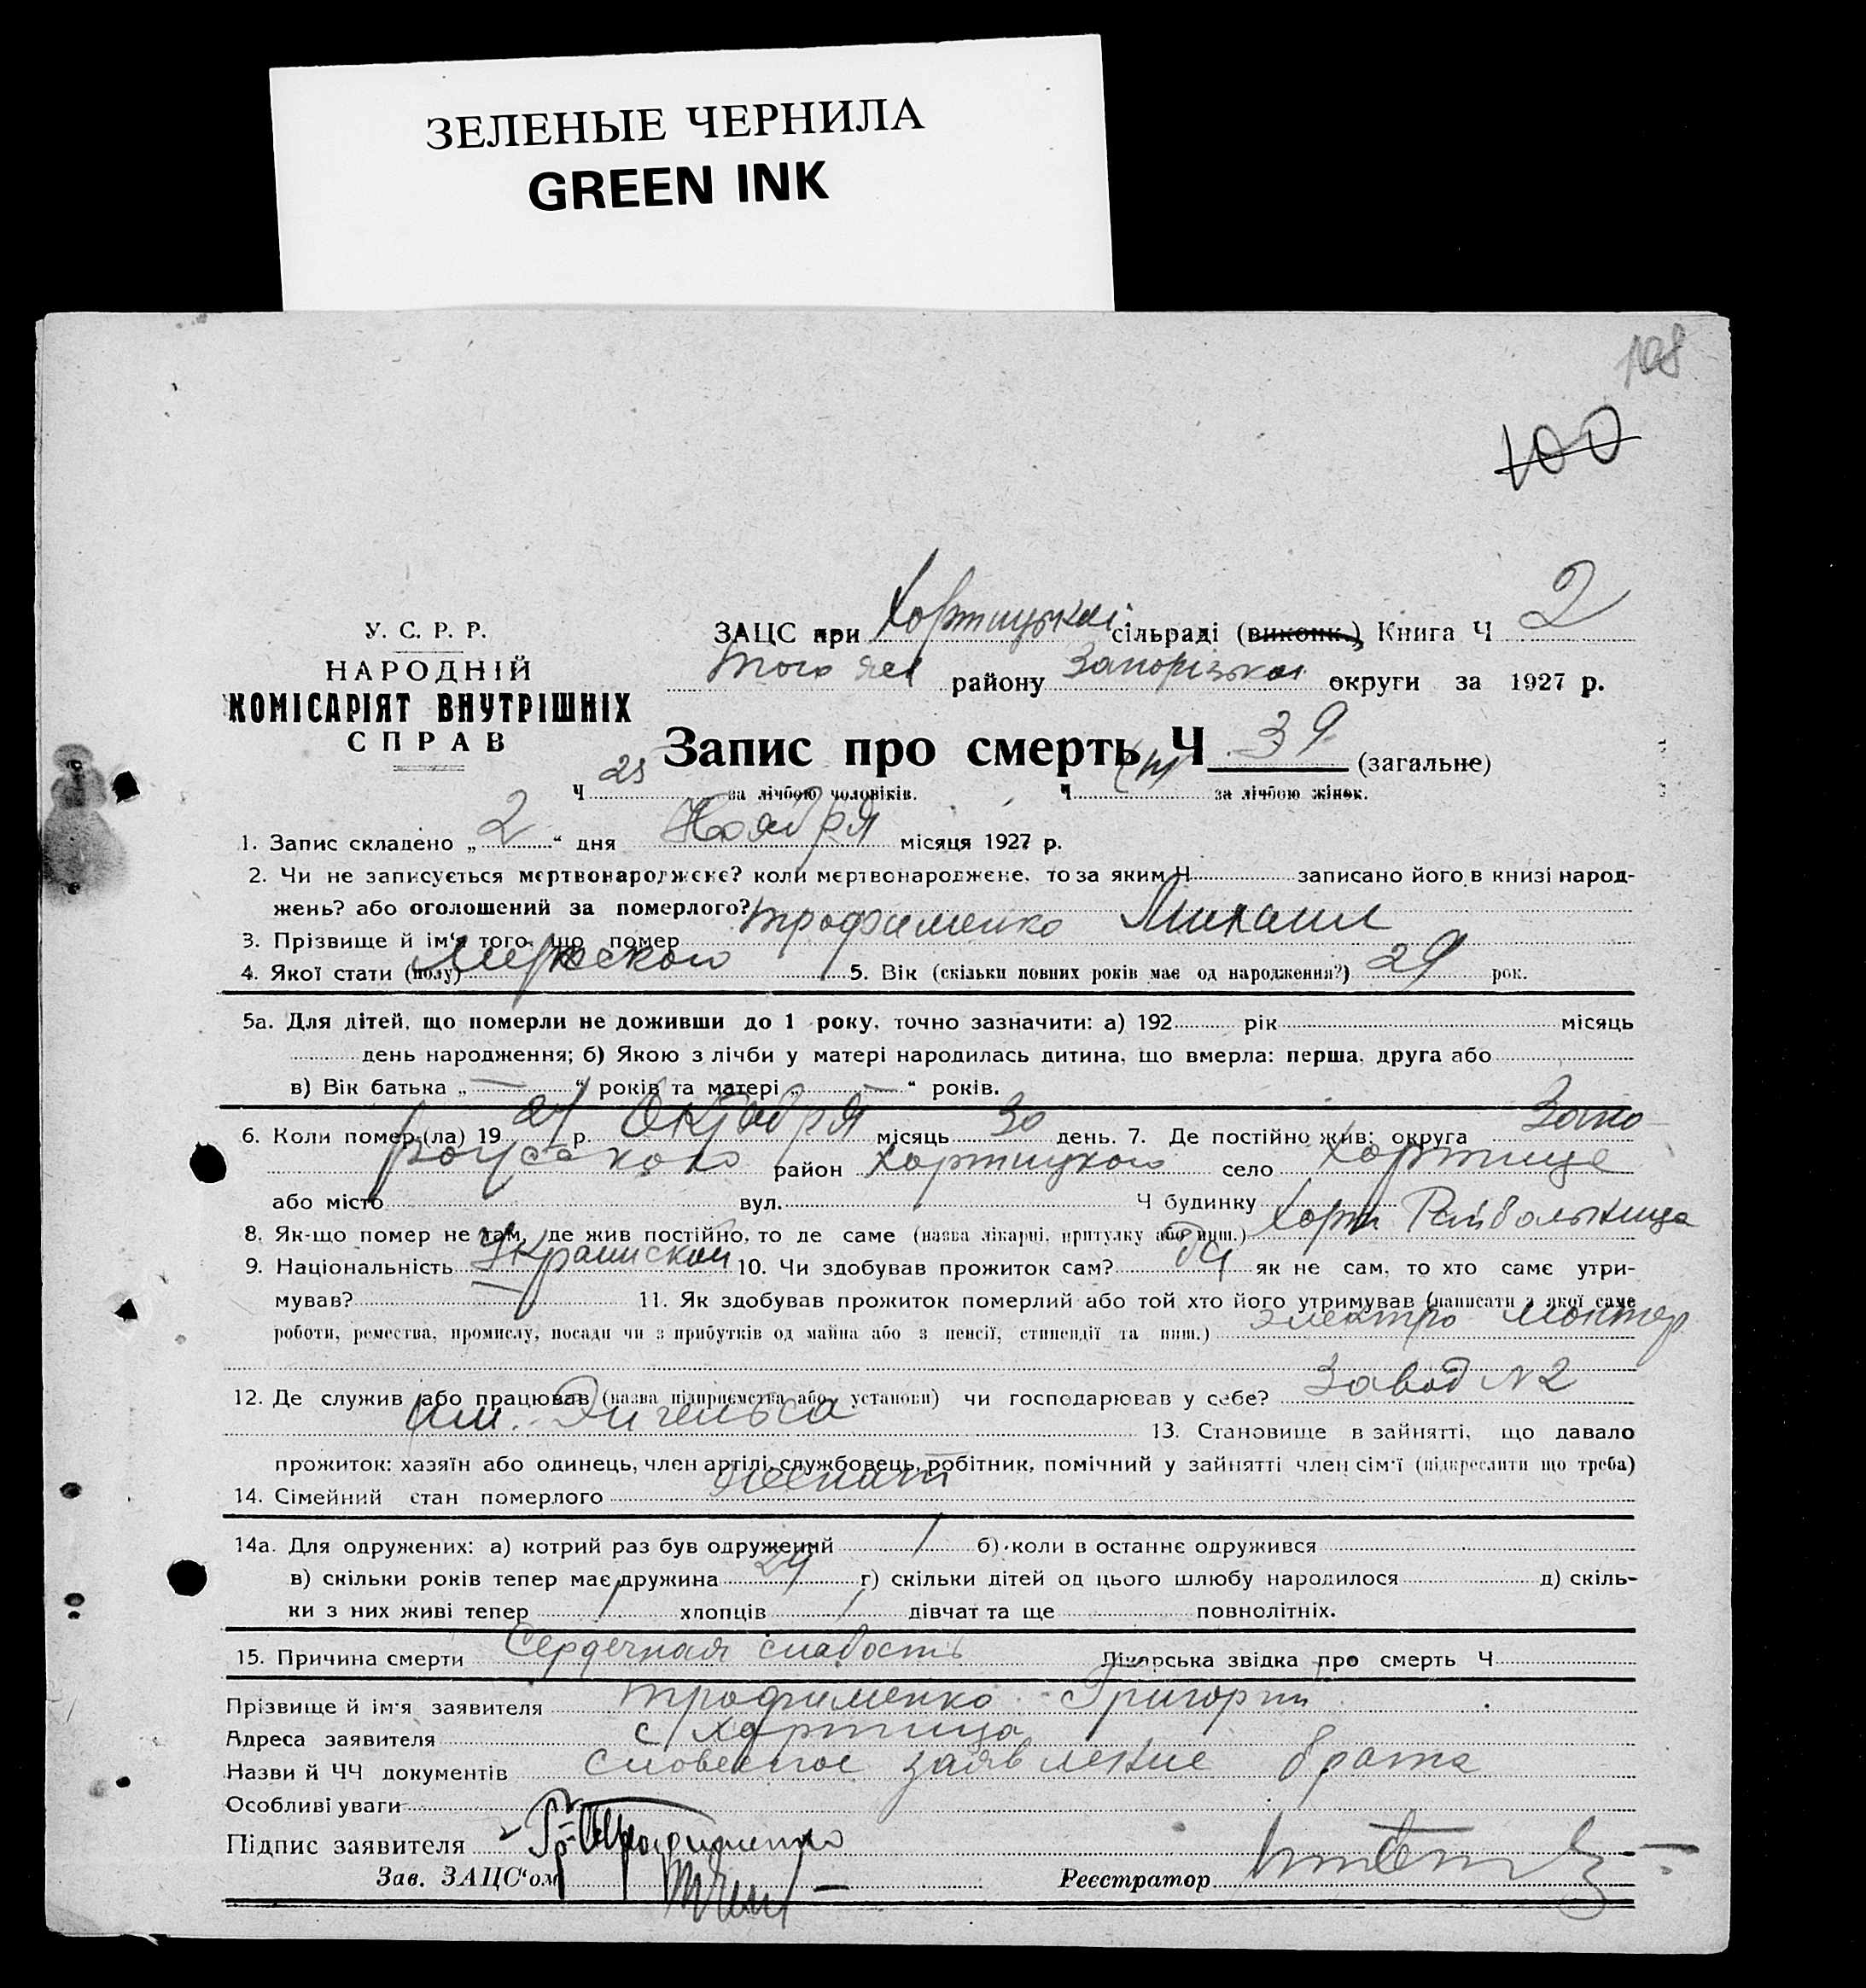 ЗЕЛЕНЫЕ ЧЕРНИЛА
GREEN INK
108
100
У. С. Р. Р.
НАРОДНІЙ
КОМІСАРІЯТ ВНУТРІШНІХ
СПРАВ
ЗАЦС при Хортицькій сільраді (виконк.) Книга Ч 2
того же району Запорізькоі округи за 1927 р.
Запис про смерть Ч 39 (загальне)
Ч 25 за лічбою чоловіків. Ч за лічбою жінок.
1. Запис складено „ 2 “ дня Ноября місяця 1927 р.
2. Чи не записується мертвонароджене? коли мертвонароджене, то за яким Ч записано його в книзі народ-
жень? або оголошений за померлого?
3. Прізвище й ім‘я того, що помер Трофименко Михаил
4. Якої стати (полу) Мужского 5. Вік (скільки повних років має од народження?) 29 рок.
5а. Для дітей, що померли не доживши до 1 року, точно зазначити: а) 192 рік місяць
день народження; б) Якою з лічби у матері народилась дитина, що вмерла: перша, друга або
в) Вік батька „ — “ років та матері „ — “ років.
6. Коли помер (ла) 19 27 р. Октября місяць 30 день. 7. Де постійно жив: округа Запо-
рожского район Хортицкого село Хортице
або місто вул. Ч будинку
8. Як-що помер не там, де жив постійно, то де саме (назва лікарні, притулку або инш.) Хорт Райбольница
9. Національність Украинской 10. Чи здобував прожиток сам? Да як не сам, то хто саме утри-
мував? 11. Як здобував прожиток померлий або той хто його утримував (написати з якої саме
роботи, ремества, промислу, посади чи з прибутків од майна або з пенсії, стипендії та инш.) электро монтер
12. Де служив або працював (назва підприємства або установи) чи господарював у себе? Завод №2
им. Энгельса 13. Становище в зайнятті, що давало
прожиток: хазяїн або одинець, член артілі, службовець, робітник, помічний у зайнятті член сім‘ї (підкреслити що треба)
14. Сімейний стан померлого женат
14а. Для одружених: а) котрий раз був одружений 1 б) коли в останнє одружився
в) скільки років тепер має дружина 24 г) скільки дітей од цього шлюбу народилося д) скіль-
ки з них живі тепер 1 хлопців 1 дівчат та ще повнолітніх.
15. Причина смерти Сердечная слабость Лікарська звідка про смерть Ч
Прізвище й ім‘я заявителя Трофименко Григорий
Адреса заявителя с Хортица
Назви й ЧЧ документів Словесное заявление брата
Особливі уваги
Підпис заявителя Гр. Трофименко
Зав. ЗАЦС‘ом Реєстратор